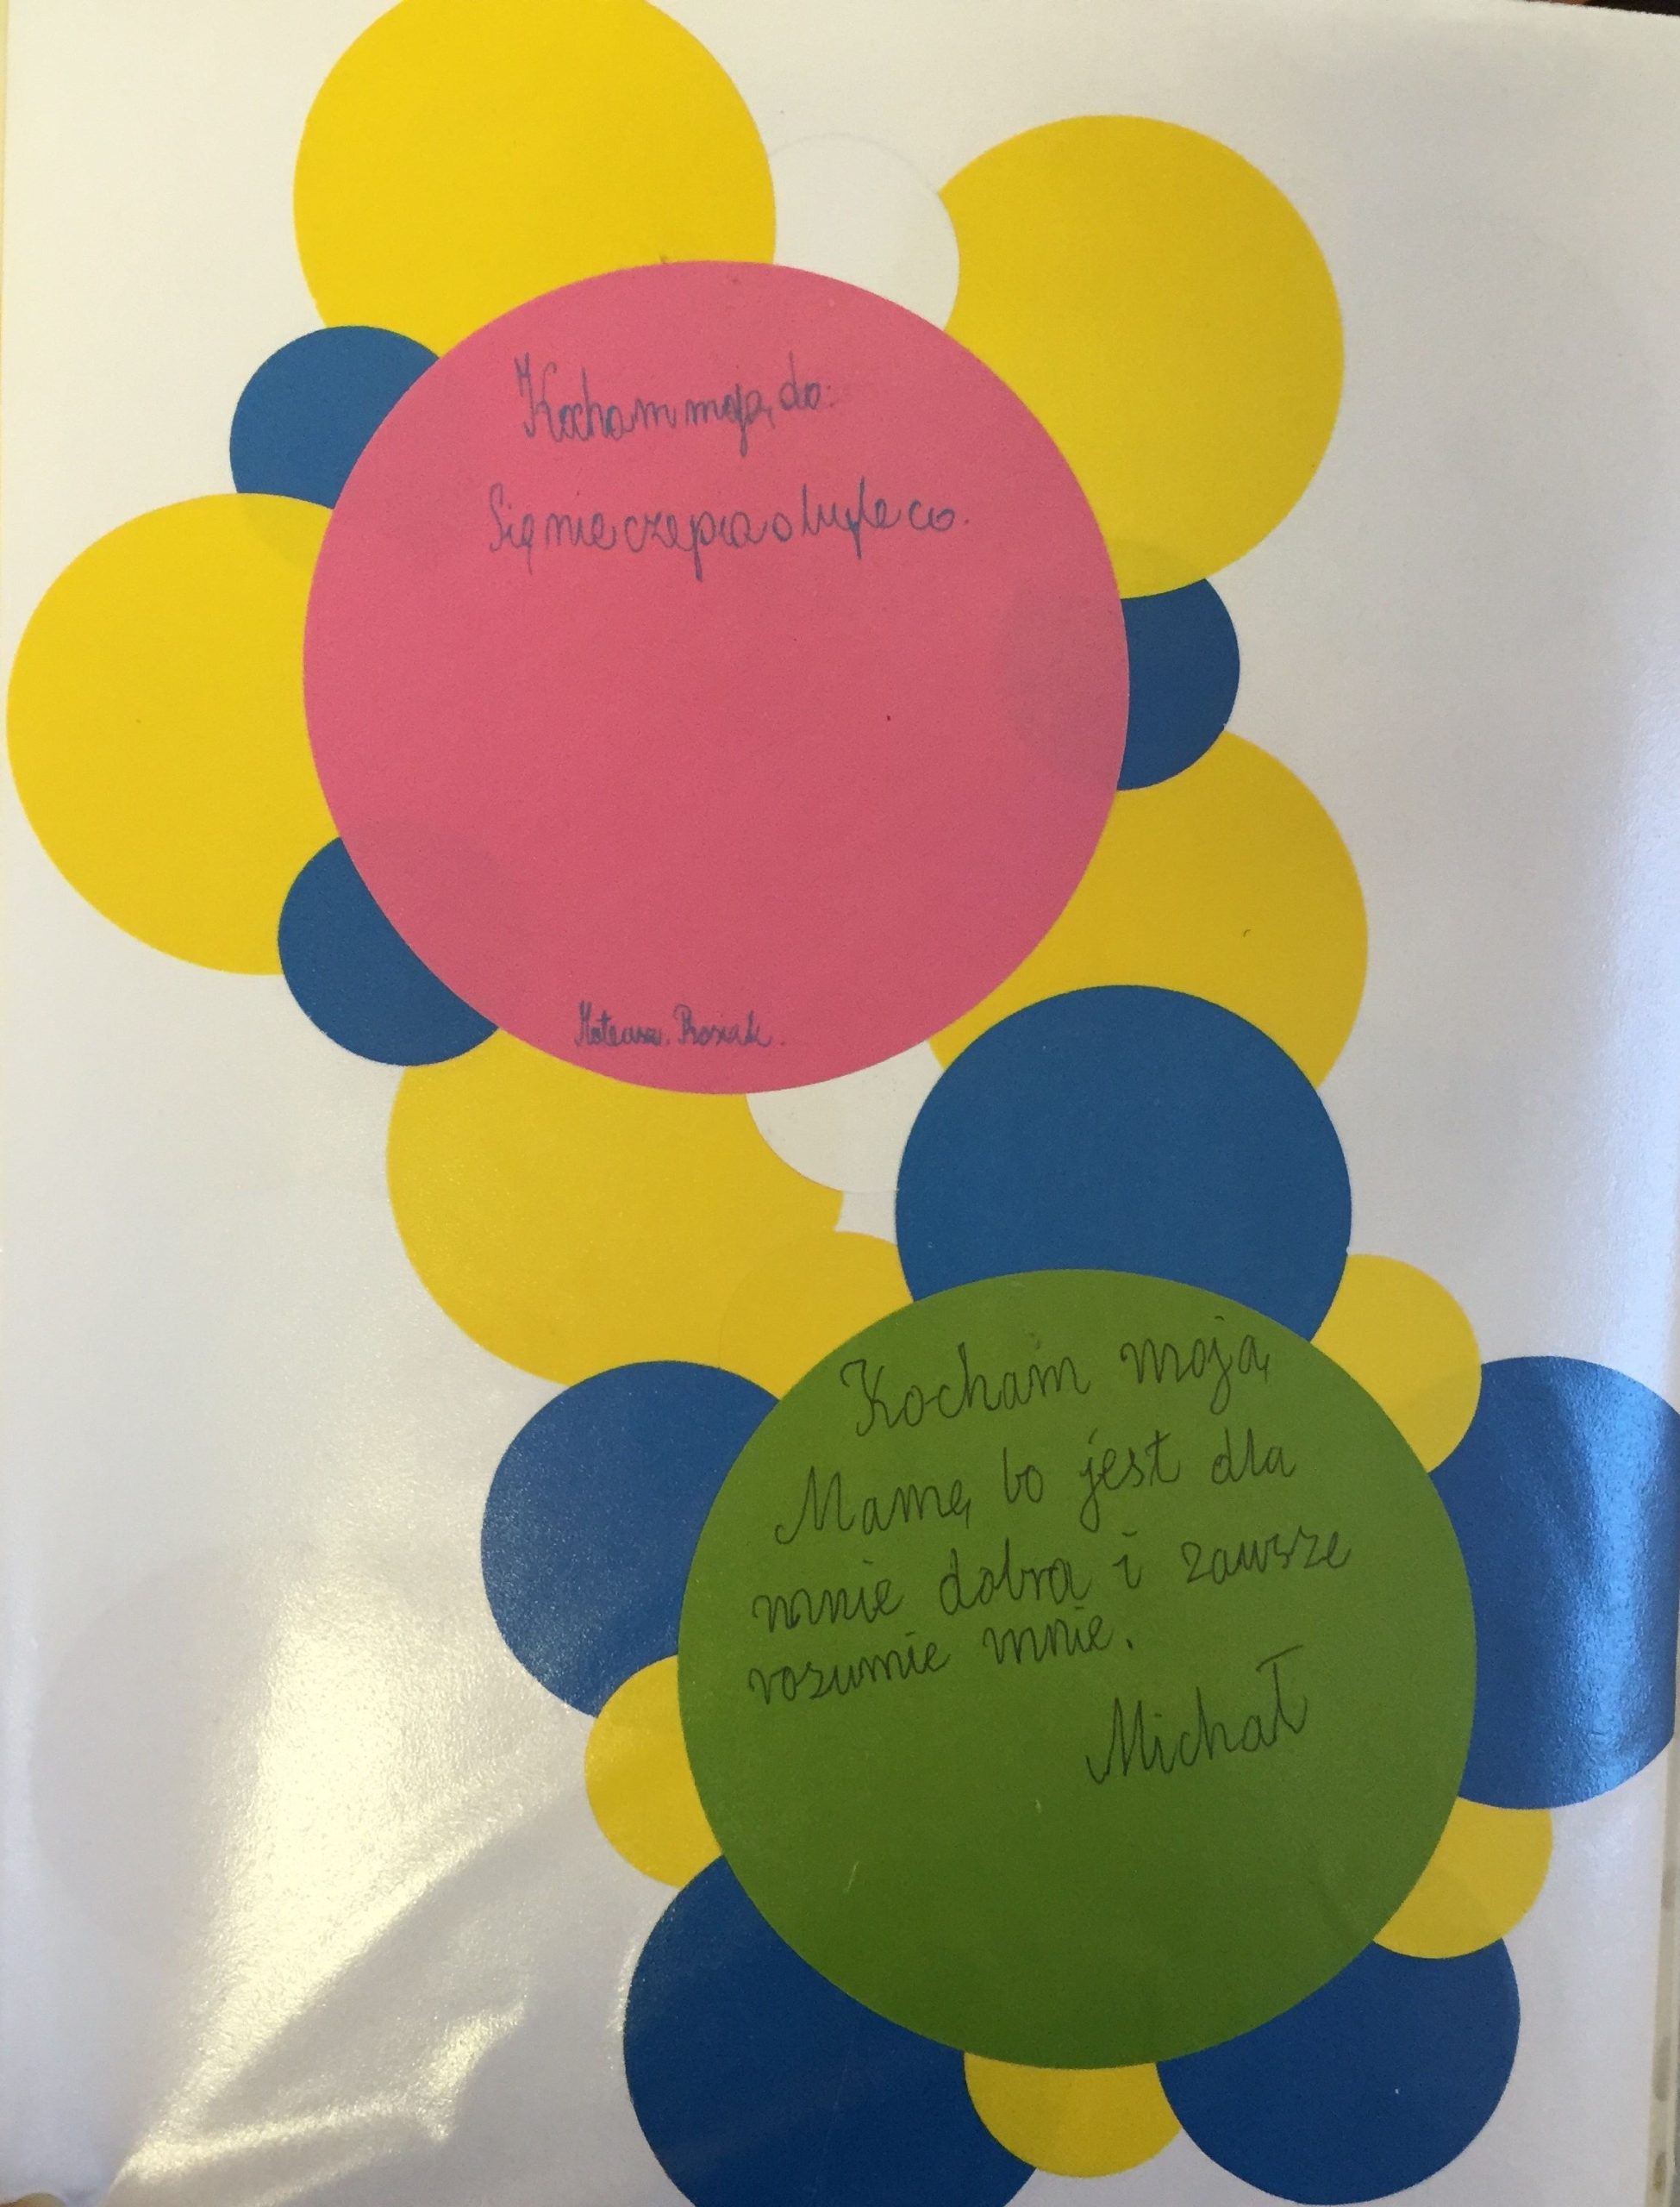 Kocham moją do:
Się nie czepia o byle co.
Mateusz.
Kocham moją
Mamę, bo jest dla
mnie dobra i zawsze
rozumie mnie.
Michał